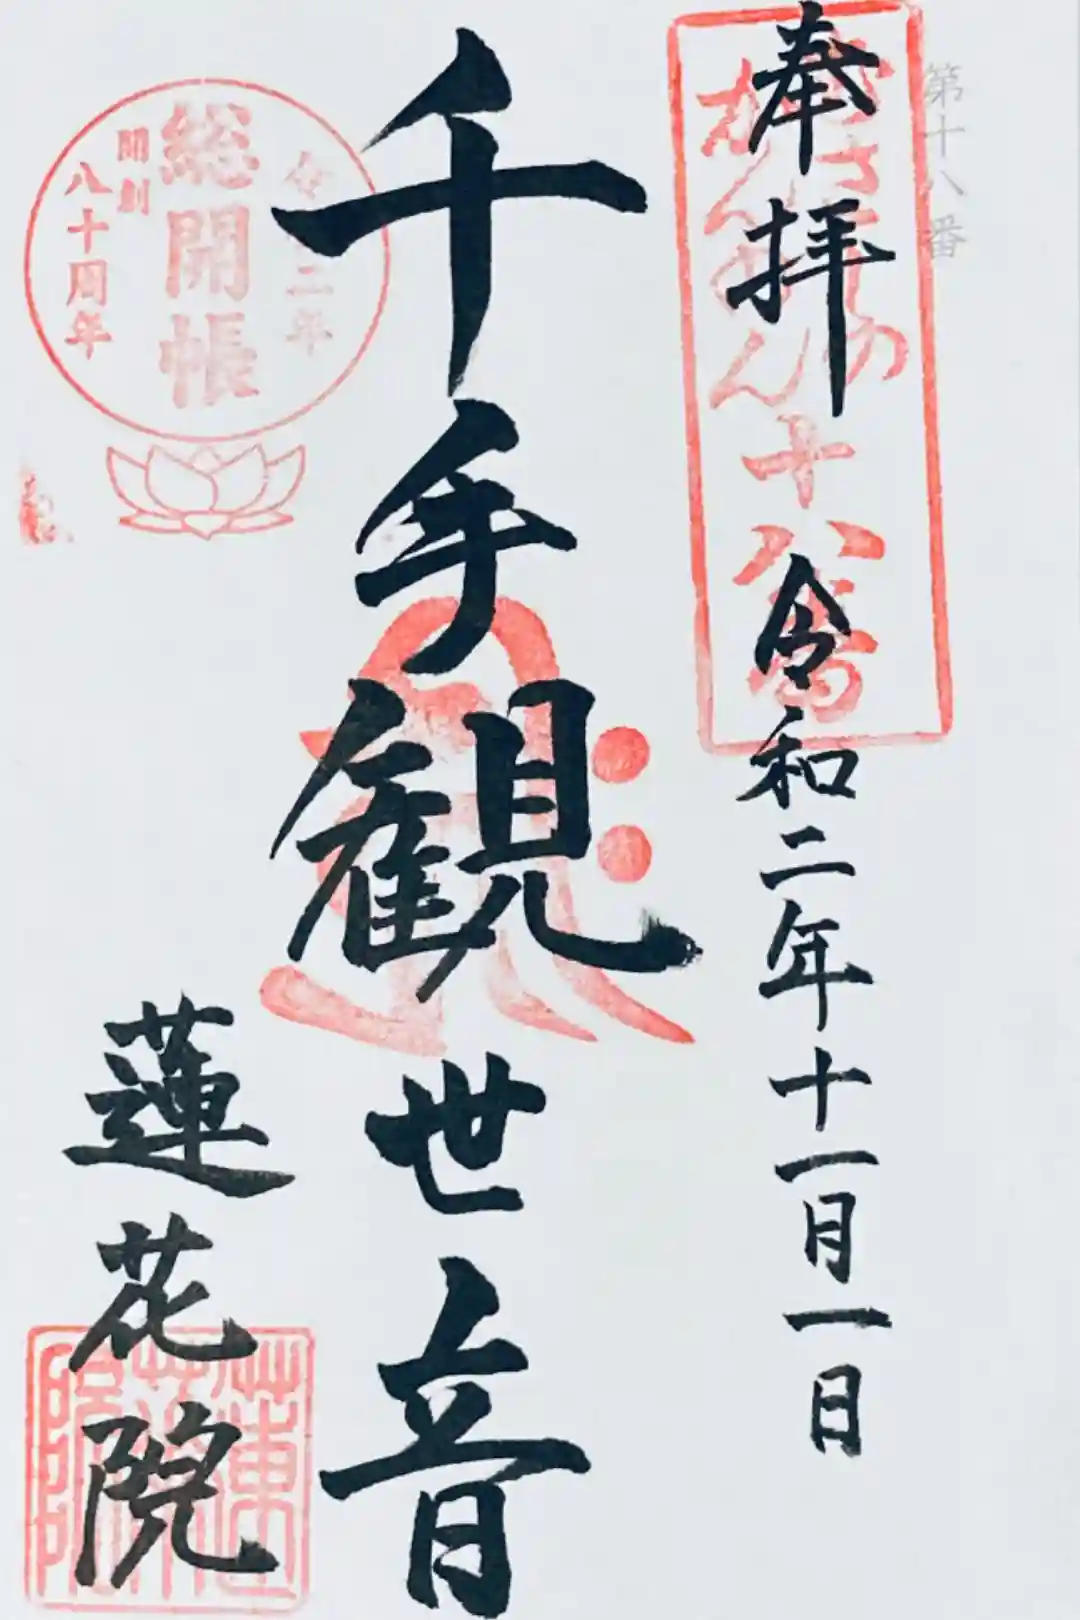 第十八番
奉拝
令和二年十一月一日
十八番
千手観世音
令和二年
総開帳
開創
八十周年
蓮花院
蓮花院